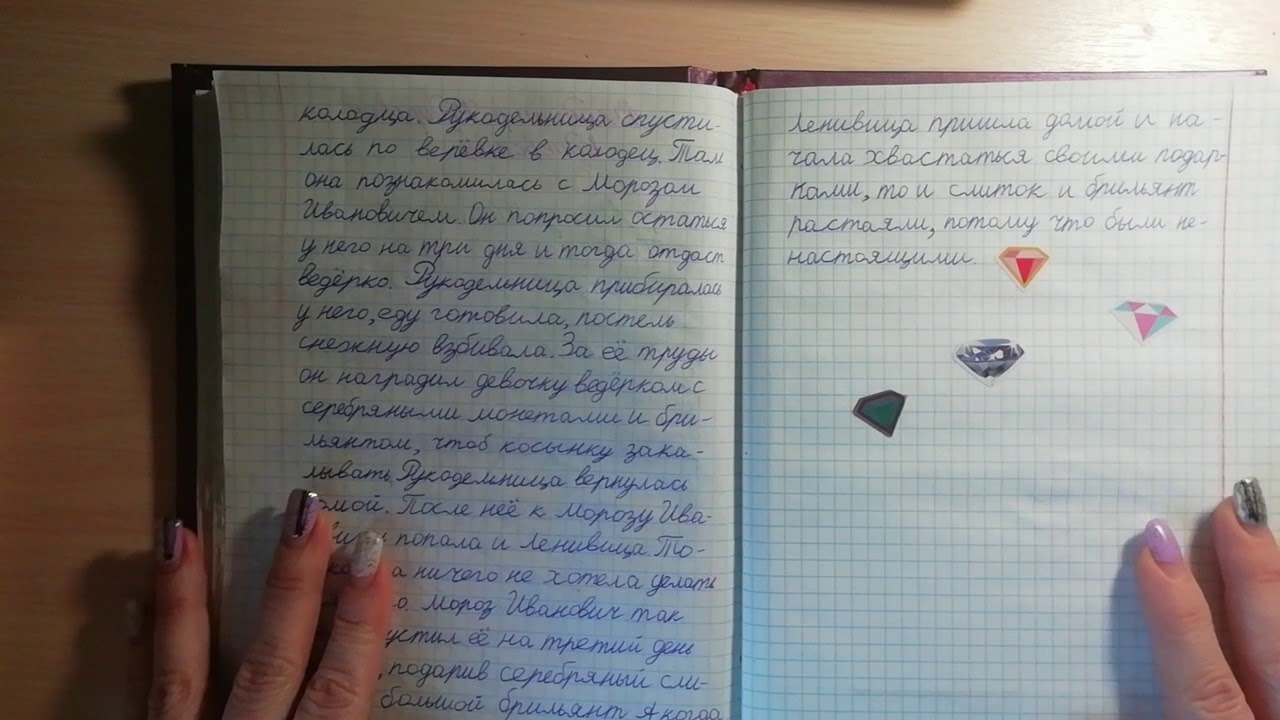 колодца. Рукодельница спусти-
лась по верёвке в колодец. Там
она познакомилась с Морозом
Ивановичем. Он попросил остаться
у него на три дня и тогда отдаст
ведёрко. Рукодельница прибиралась
у него, еду готовила, постель
снежную взбивала. За её труды
он наградил девочку ведёрком с
серебряными монетами и бри-
льянтом, чтоб косынку зака-
лывать. Рукодельница вернулась
омой. После неё к Морозу Ива-
попала и Ленивица. То-
а ничего не хотела делать
о. Мороз Иванович так
устил её на третий день
, подарив серебряный сли-
большой брильянт. А когда
Ленивица пришла домой и на-
чала хвастаться своими подар-
ками, то и слиток и брильянт
растаяли, потому что были не-
настоящими.